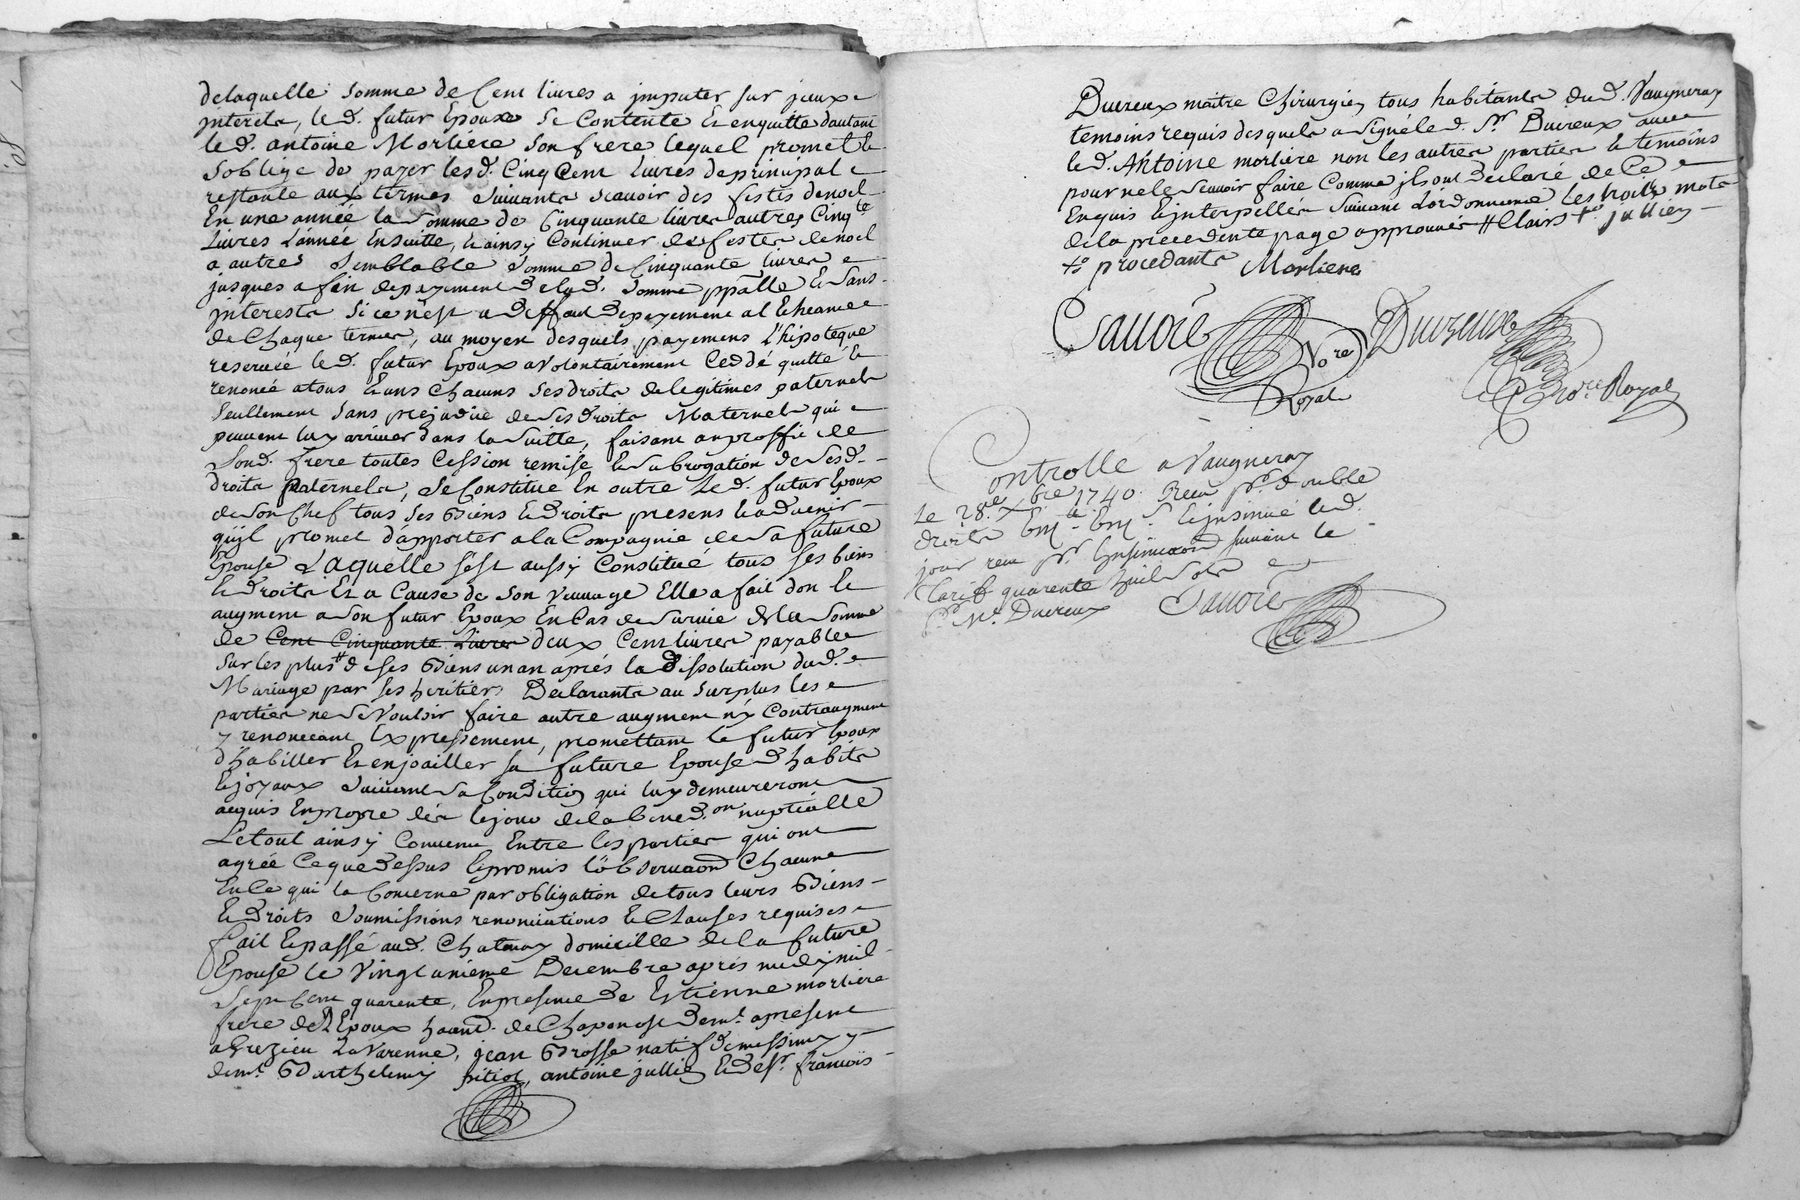 delaquelle somme de Cent livres a jmputer sur jceux
jnterets, le d. futur Epoux se Contente Et enquitte dautant
le d. antoine Morliere son frere lequel promet &
soblige de payer lesd. Cinq Cent livres deprincipal
restante aux termes suivants scauoir des festes denoel
En une année la somme de Cinquante livres autres Cinq.te
Livres L'année Ensuitte, & ainsy Continuer desfestes denoel
a autres semblable somme de Cinquante livres
jusques a fin depayement delad. somme ppalle & sans
jnterests si ce n'est a deffaut depayement a l Echeance
de Chaque terme, au moyen desquels payemens l'hipoteque
reservée le d. futur Epoux a volontairement Ceddé quitté &
renoncé atous & uns chacuns ses droits delegitimes paternels
seullement sans prejudice de ses droits Maternels qui
peuuent luy arriuer dans la suitte, faisant au proffit de
sond. frere toutes Cession remise & subrogation de sesd.
droits paternels, se Constitue En outre le d. futur Epoux
de son Chef tous ses Biens & droits presens & aduenir
qu'jl promet d'apporter a la Compagnie de sa future
Epouse Laquelle s'est aussy Constitué tous ses biens
& droits Et a Cause de son veuvage Elle a fait don &
augment a son futur Epoux En Cas de survie de la somme
de Cent Cinquante Livres deux Cent livres payable
sur les plus # d ses Biens un an aprés la dissolution dud.
Mariage par ses heritiers Declarants au surplus les
parties ne se Vouloir faire autre augment n'y Contraugment
y renoncant Expressement, promettant le futur Epoux
d'habiller Et enjoailler sa future Epouse d'habits
& joyaux suivant sa Condition qui luy demeureront
acquis Enpropre dés le jour de la bened.on nuptialle
Le tout ainsy Convenu Entre les parties qui ont
agrée Ce que dessus & promis l'observaon Chacune
En Ce qui la Concerne par obligation de tous leurs Biens
& droits soumissions renonciations & Clauses requises
fait & passé aud. Chatenay domicille de la future
Epouse le vingt unieme Decembre aprés midy mil
sept Cent quarente, Enpresence de Estienne morliere
frere de l'Epoux hant. de Chaponost dem.t apresent
a Grezieu La Varenne, jean Brosse natif de messimy y
dem.t Barthelemy pitiot, antoine jullien & de s.r francois
Ducreux maitre chirurgien tous habitants dud. Vaugneray
temoins requis desquels a signé le d. S.r Ducreux avec
le d. Antoine morliere non les autres parties & temoins
pour ne le scauoir faire Comme jls ont declaré de Ce
Enquis & jnterpellés suivant L'ordonnance les troits mots
de la precedente page approuvés # Clairs jullien
procedants Morliere
Sauoie Ducreux
No.re Royal
Pro.r Royal
Controlle a Vaugneray
Le 28.e Xbre 1740. Receu p.r double
droits & jnsinué led.
jour receu p.r Insinuaon suivant le
tarif quarente huit sols
P.r M.e Ducreux Sauoie